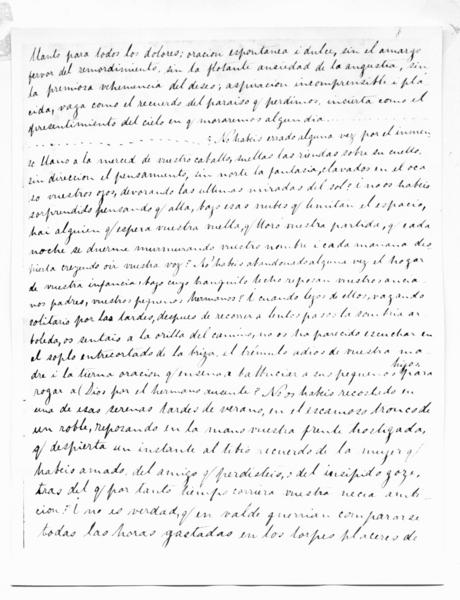 llanto para todos los dolores; oracion espontanea i dulce, sin el amargo
fervor del remordimiento, sin la flotante ansiedad de la angustia, sin
la premiosa vehemencia del deseo; aspiracion incomprensible i plá
cida, vaga como el recuerdo del paraiso q/ perdimos, incierta como el
presentimiento del cielo en q/ moraremos algun dia.........
.......................¿No habeis errado alguna vez por el inmen
so llano a la merced de vuestro caballo, sueltas las riendas sobre su cuello,
sin direccion el pensamiento, sin norte la fantasia, clavados en el oca
so vuestros ojos, devorando las ultimas miradas del sol; i no os habeis
sorprendido pensando q/ alla, bajo esas nubes q/ limitan el espacio,
hai alguien q/ espera vuestra vuelta, q/ lloro vuestra partida, q/ cada
noche se duerme murmurando vuestro nombre i cada mañana des
pierta creyendo oir vuestra voz? ¿No habeis abandonado alguna vez el hogar
de vuestra infancia, bajo cuyo tranquilo techo reposan vuestros ancia
nos padres, vuestros pequeños hermanos? I cuando lejos de ellos, vagando
solitario por las tardes, despues de recorrer a lentos pasos la sombria ar
boleda, os sentais a la orilla del camino, no os ha parecido escuchar en
el soplo entrecortado de la briza, el trémulo adios de vuestra ma
dre i la tierna oracion q/ enseña a balbuciar a sus pequeños hijos para
rogar a Dios por el hermano ausente? ¿No os habeis recostado en
una de esas serenas tardes de verano, en el escamoso tronco de
un roble, reposando en la mano vuestra frente hostigada,
q/ despierta un instante al tibio recuerdo de la mujer q/
habeis amado, del amigo q/ perdisteis, i del insipido goze,
tras del q/ por tanto tiempo corriera vuestra necia ambi-
cion? I no es verdad, q/ en valde querrian compararse
todas las horas gastadas en los torpes placeres de